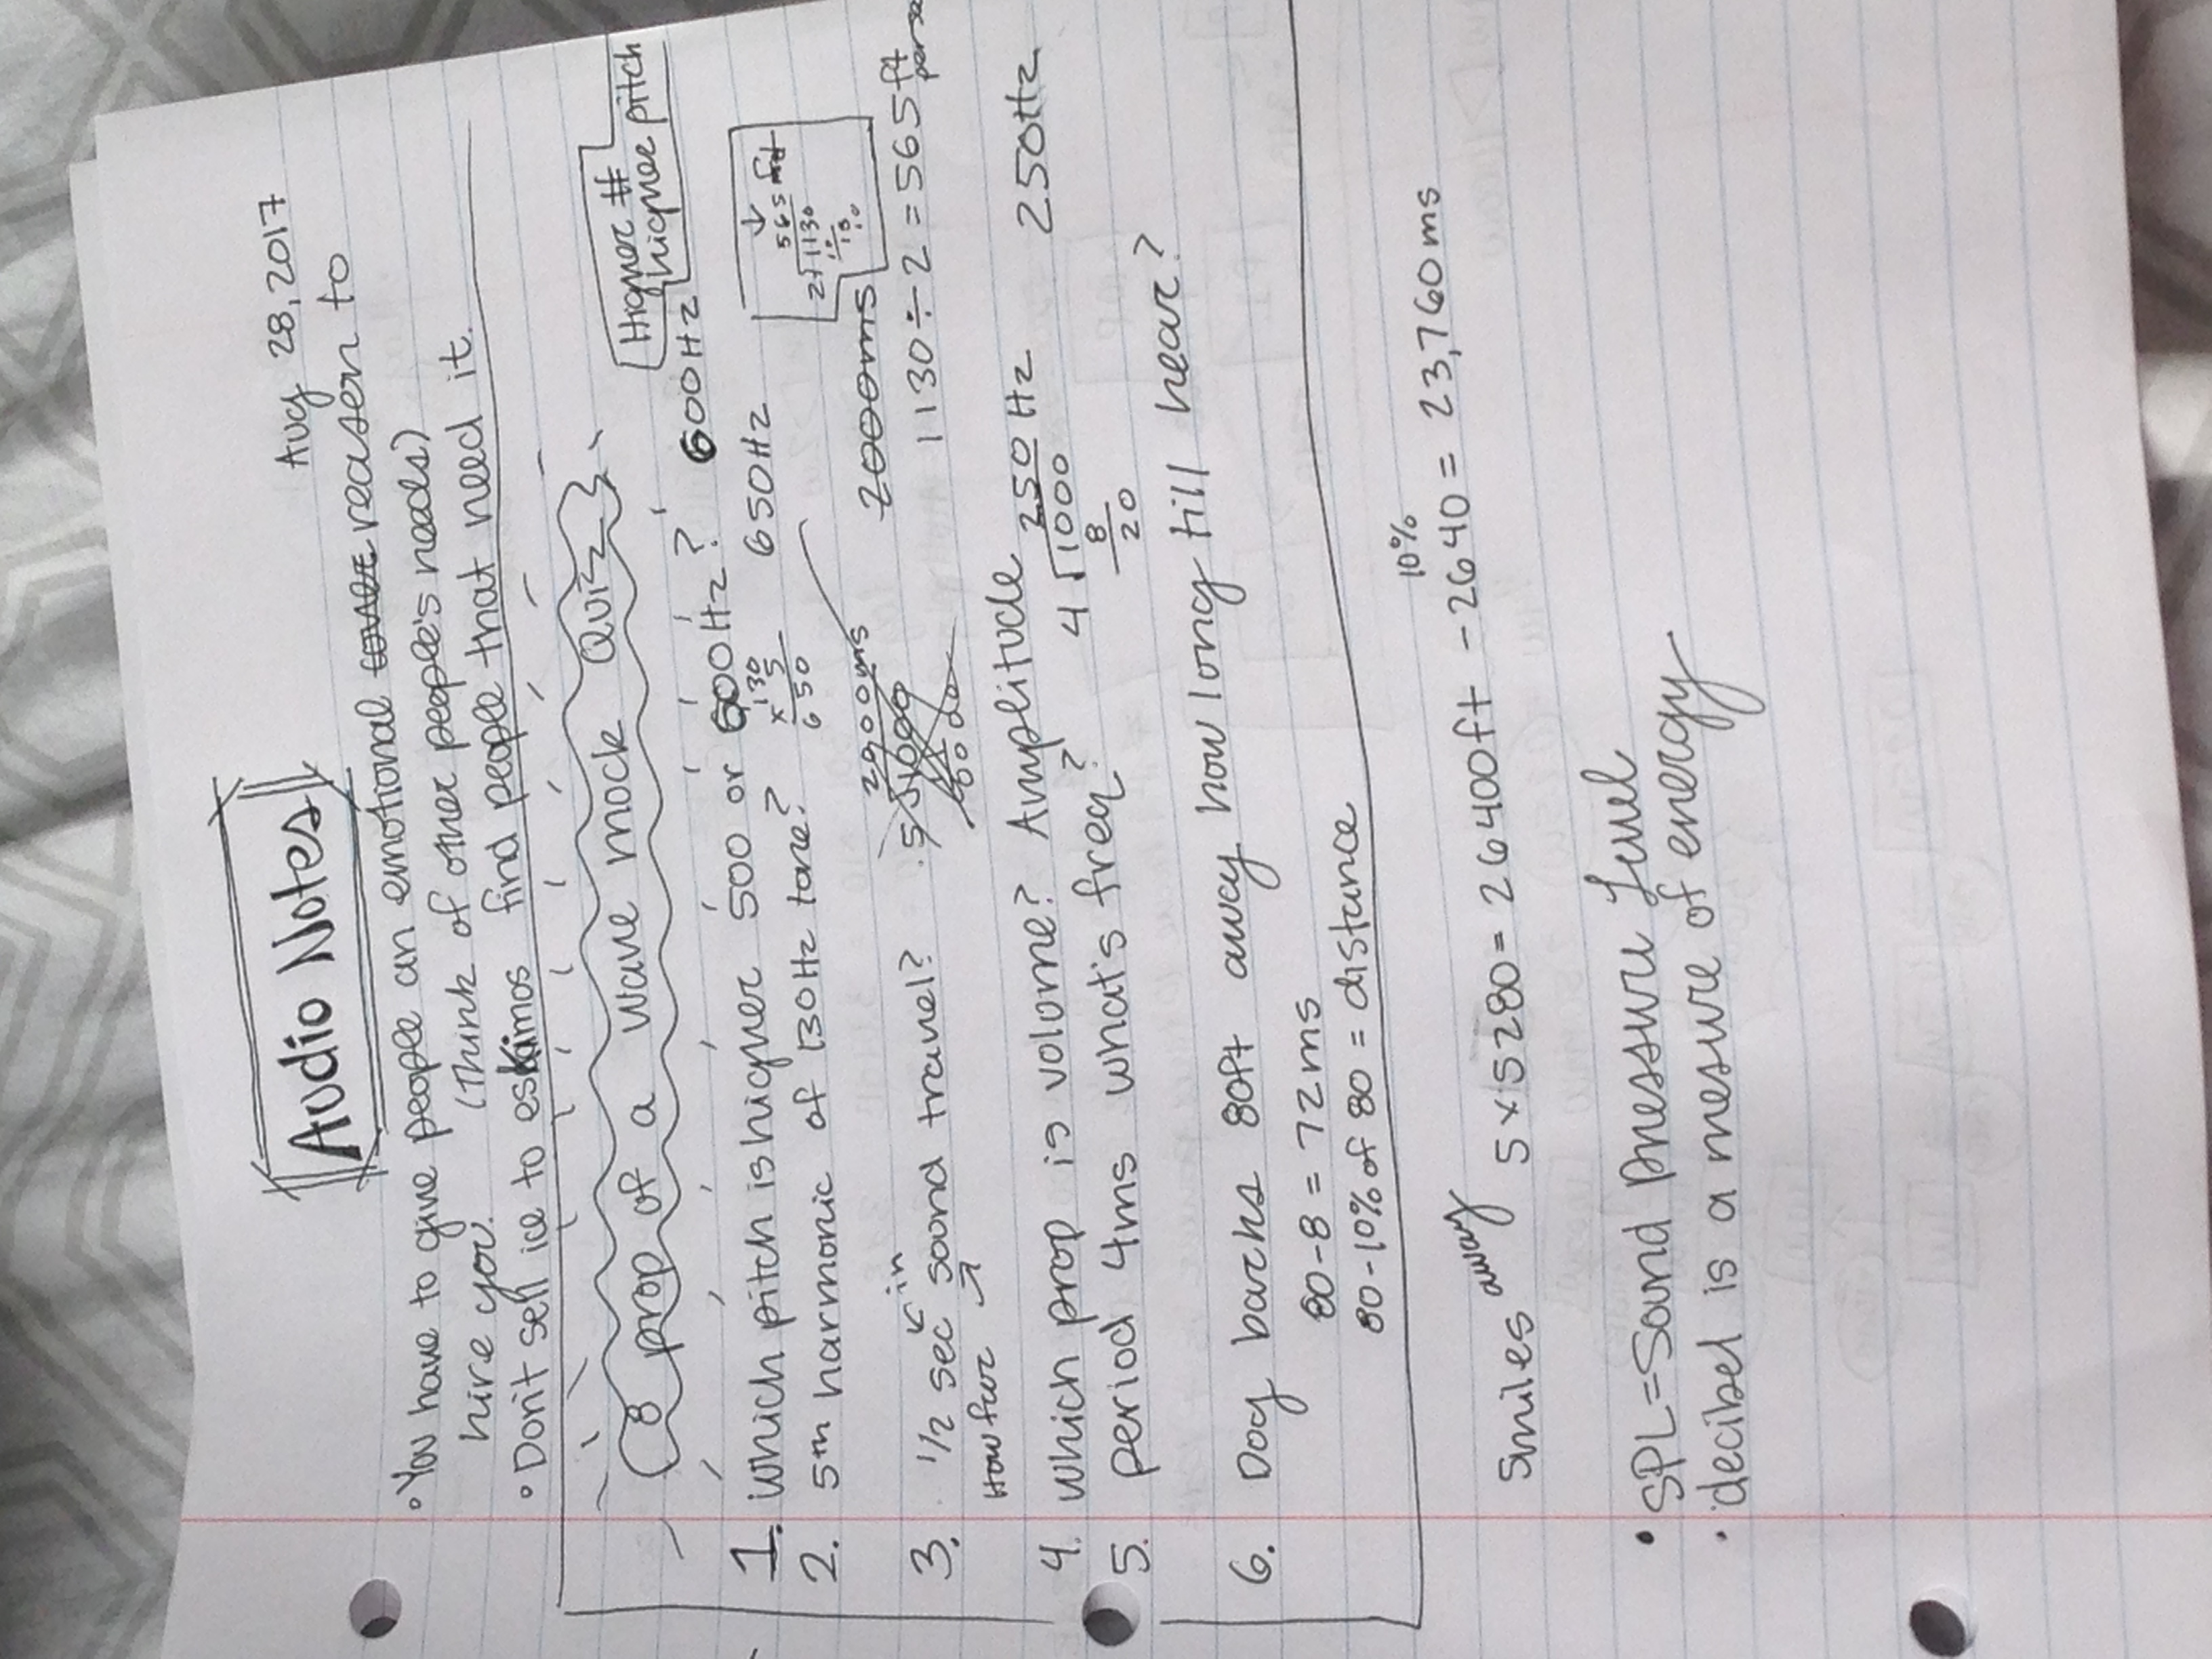 Audio Notes
Aug 28, 2017
• You have to give people an emotional reason to
hire you. (Think of other people's needs)
• Don't sell ice to eskimos find people that need it.
8 prop of a wave mock Quiz
Higher #
higher pitch
1. Which pitch is higher 500 or 600Hz? 600Hz
2. 5th harmonic of 130Hz tone? 650Hz
130
x 5
650
565
2√1130
10
13
10
3. 1/2 sec in sound travel?
How far
2000ms
.5√1000
2000ms
1130÷2 = 565 ft
4. Which prop is volume? Amplitude
5. period 4ms what's freq? 250Hz
250 Hz
4√1000
8
20
6. Dog barks 80ft away how long till hear?
80-8 = 72ms
80-10% of 80 = distance
10%
5miles away 5x5280= 26400ft -2640= 23,760ms
• SPL=Sound Pressure Level
• decibel is a mesure of energy